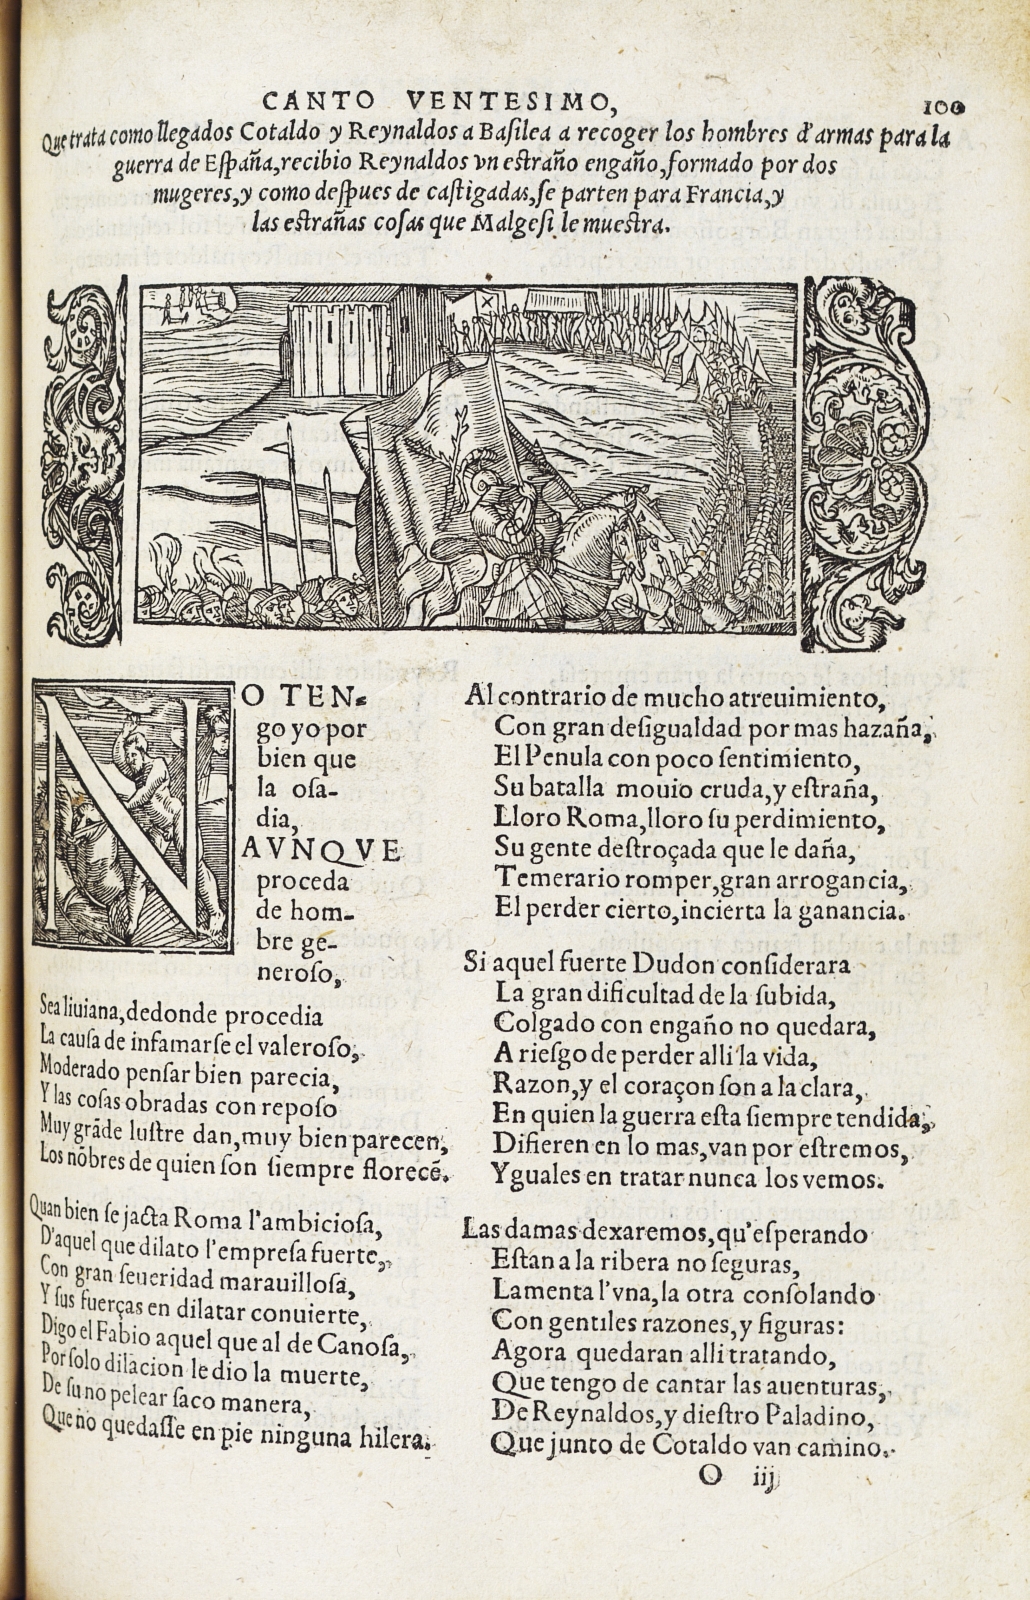 CANTO VENTESIMO,
100
Que trata como llegados Cotaldo y Reynaldos a Basilea a recoger los hombres d'armas para la
guerra de España, recibio Reynaldos vn estraño engaño, formado por dos
mugeres, y como despues de castigadas, se parten para Francia, y
las estrañas cosas que Malgesi le muestra.
NO TEN-
go yo por
bien que
la osa-
dia,
AVNQVE
proceda
de hom-
bre ge-
neroso,
Sea liuiana, dedonde procedia
La causa de infamarse el valeroso,
Moderado pensar bien parecia,
Y las cosas obradas con reposo
Muy grãde lustre dan, muy bien parecen,
Los nõbres de quien son siempre florecẽ.
Quan bien se jacta Roma l'ambiciosa,
D'aquel que dilato l'empresa fuerte,
Con gran seueridad marauillosa,
Y sus fuerças en dilatar conuierte,
Digo el Fabio aquel que al de Canosa,
Por solo dilacion le dio la muerte,
De su no pelear saco manera,
Que no quedasse en pie ninguna hilera.
Al contrario de mucho atreuimiento,
Con gran desigualdad por mas hazaña,
El Penula con poco sentimiento,
Su batalla mouio cruda, y estraña,
Lloro Roma, lloro su perdimiento,
Su gente destroçada que le daña,
Temerario romper, gran arrogancia,
El perder cierto, incierta la ganancia.
Si aquel fuerte Dudon considerara
La gran dificultad de la subida,
Colgado con engaño no quedara,
A riesgo de perder alli la vida,
Razon, y el coraçon son a la clara,
En quien la guerra esta siempre tendida,
Difieren en lo mas, van por estremos,
Yguales en tratar nunca los vemos.
Las damas dexaremos, qu'esperando
Están a la ribera no seguras,
Lamenta l'vna, la otra consolando
Con gentiles razones, y figuras:
Agora quedaran alli tratando,
Que tengo de cantar las auenturas,
De Reynaldos, y diestro Paladino,
Que junto de Cotaldo van camino.
O iij